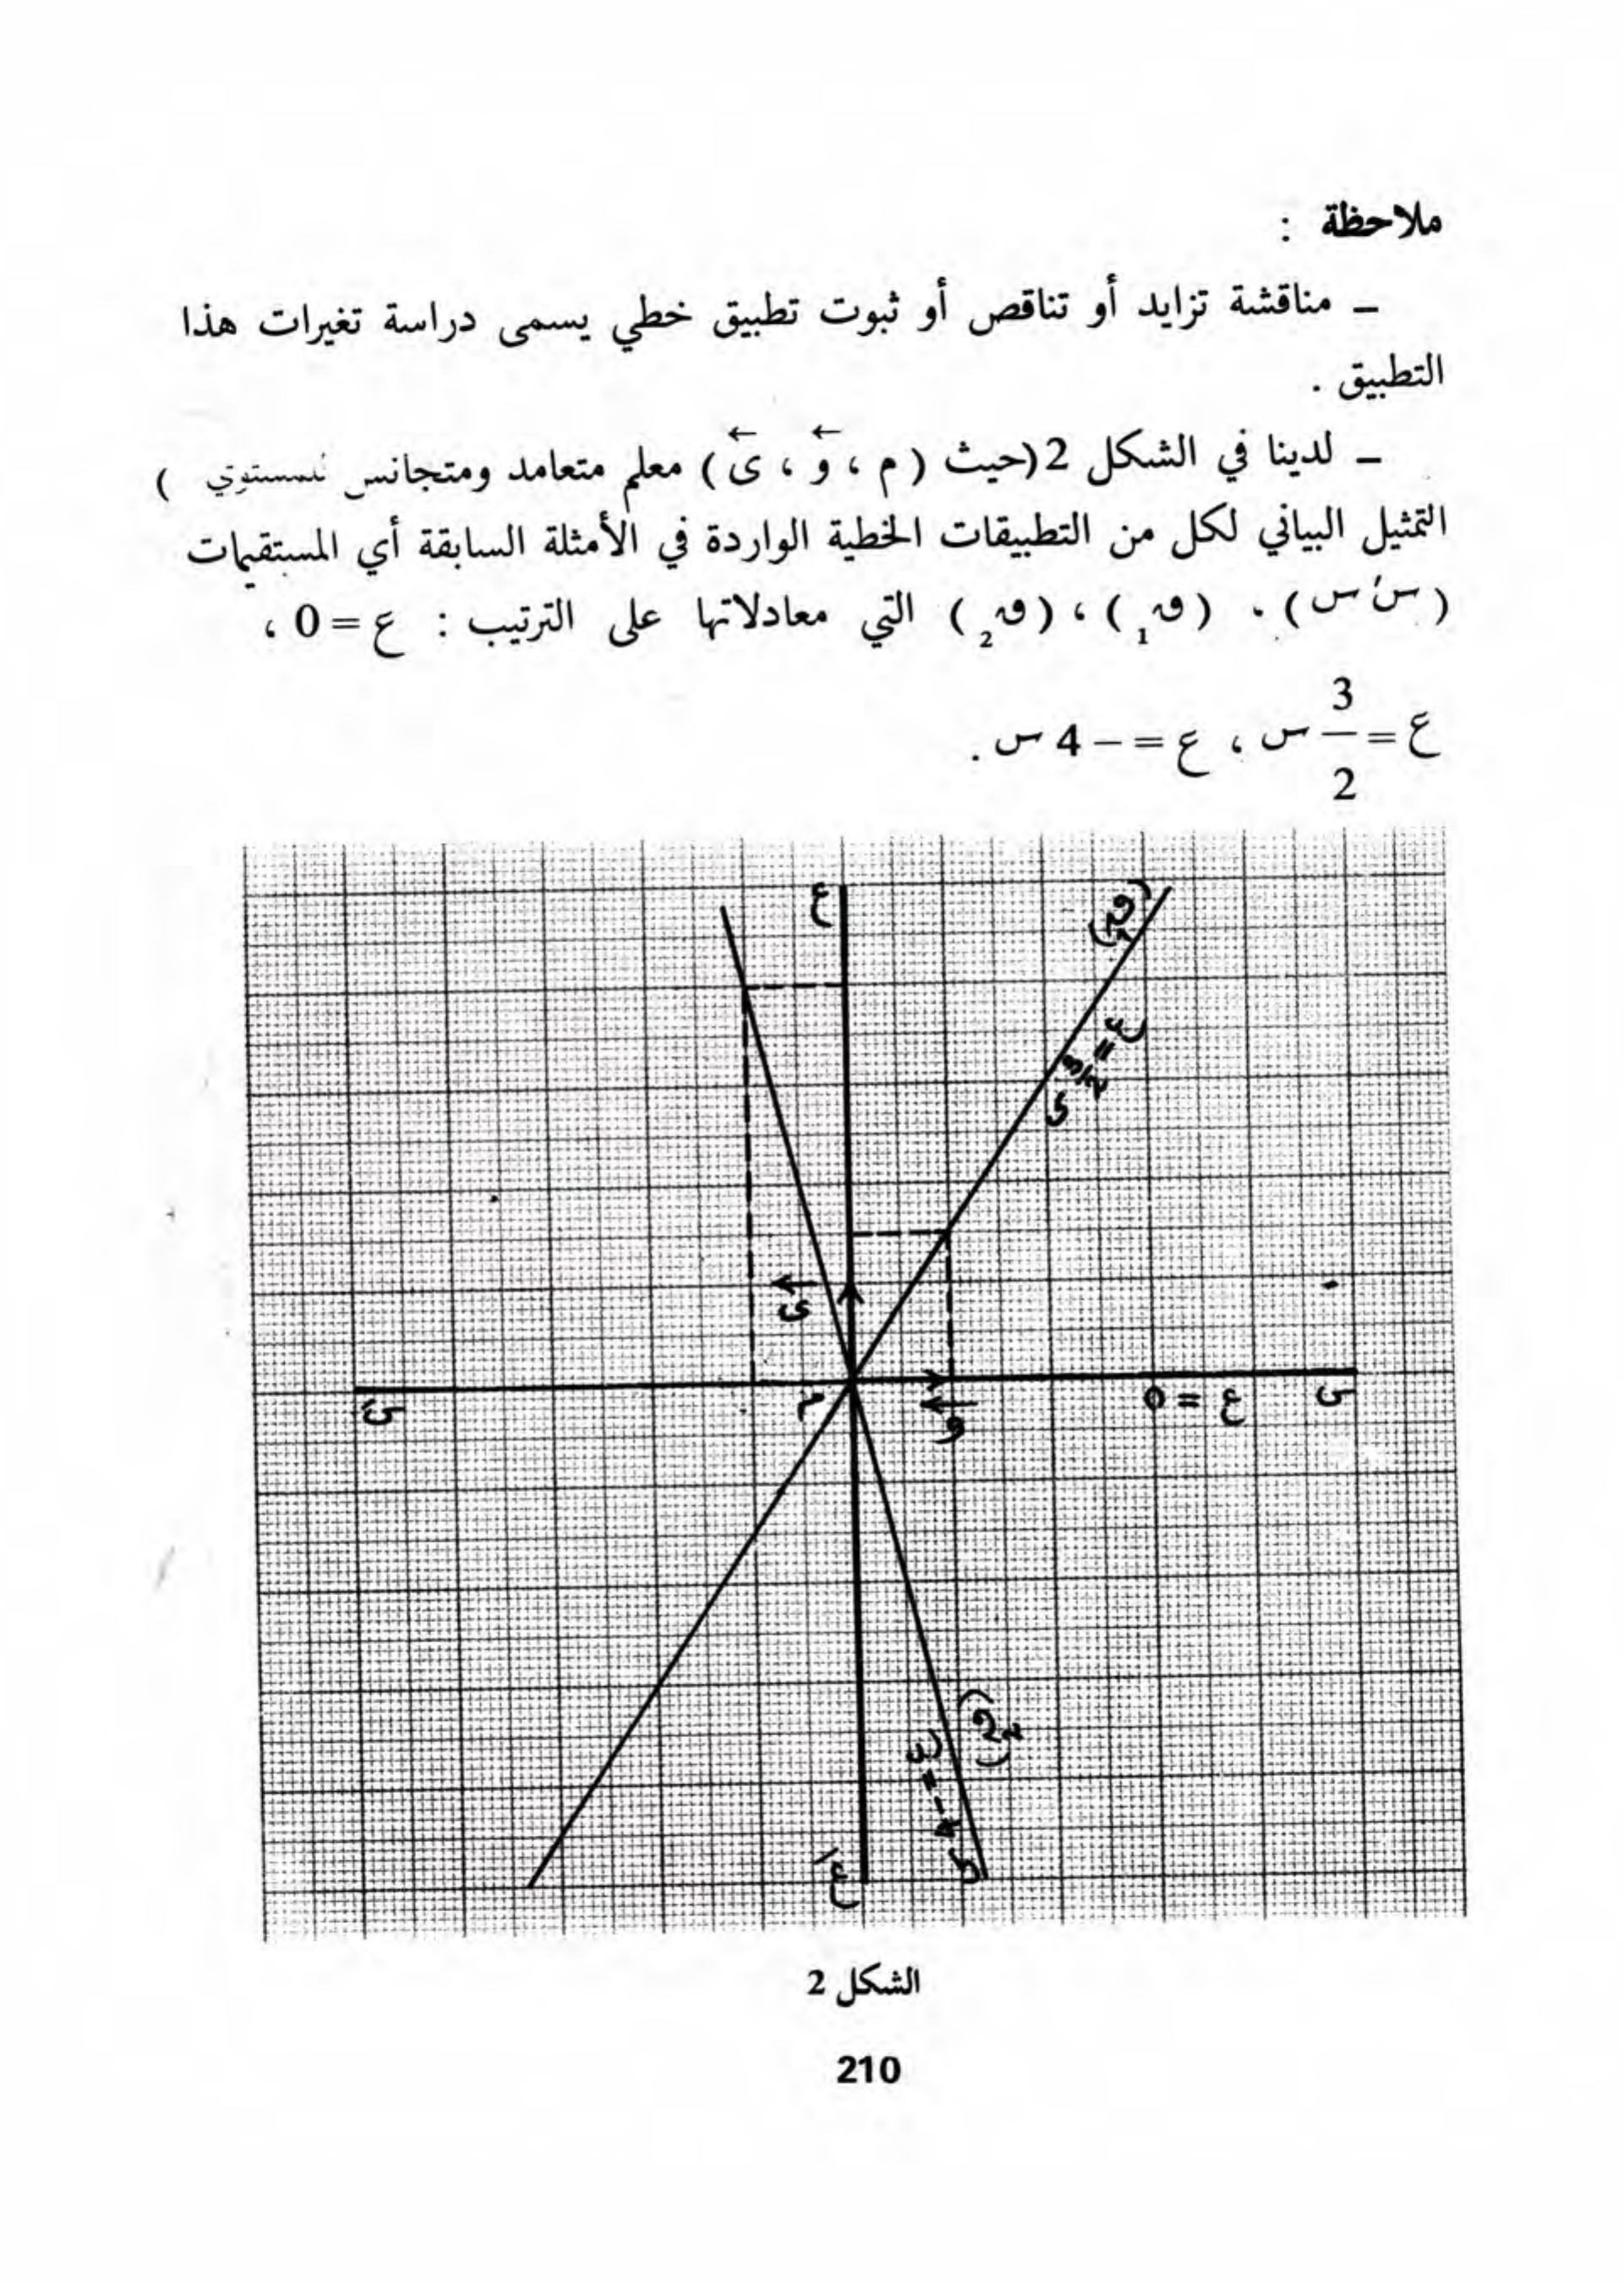 ملاحظة :
ـ مناقشة تزايد أو تناقص أو ثبوت تطبيق خطي يسمى دراسة تغيرات هذا
التطبيق .
ـ لدينا في الشكل 2 (حيث ( م ، و⃖ ، ى⃖ ) معلم متعامد ومتجانس للمستوي )
التمثيل البياني لكل من التطبيقات الخطية الواردة في الأمثلة السابقة أي المستقيمات
( سَ س ) . ( ق1 ) ، ( ق2 ) التي معادلاتها على الترتيب : ع = 0 ،
ع = 3/2 س ، ع = – 4 س .
ع
(ق1)
ع = 3/2 س
ى
م
و
ع = 0
س
سَ
(ق2)
ع = -4 س
عَ
الشكل 2
210